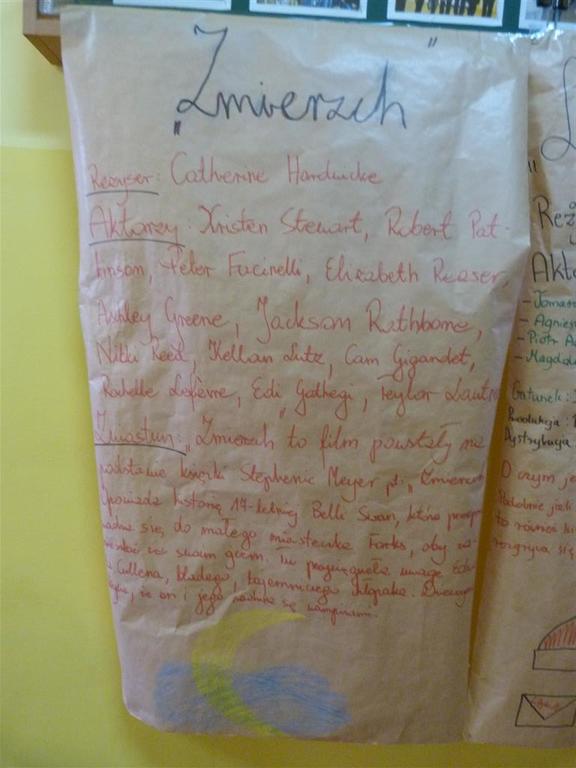 „Zmierzch”
Reżyser: Catherine Hardwicke
Aktorzy: Kristen Stewart, Robert Pat-
tinson, Peter Facinelli, Elizabeth Reaser,
Ashley Greene, Jackson Rathbone,
Nikki Reed, Kellan Lutz, Cam Gigandet,
Rachelle Lefevre, Edi Gathegi, Taylor Lautn
Zwiastun: „Zmierzch” to film powstały na
podstawie książki Stephenie Meyer pt. „Zmierzch
Opowiada historię 17-letniej Belli Swan, która
się do małego miasteczka Forks, aby
ze swoim ojcem. Tu przyciąga uwagę
Cullena, bladego, tajemniczego chłopaka.
że on i jego rodzina są wampirami.
„
Reż
Akto
- Tomas
- Agnies
- Piotr A
- Magda
Gatunek:
Produkcja:
Dystrybucja
O czym je
to również
rozgrywa się